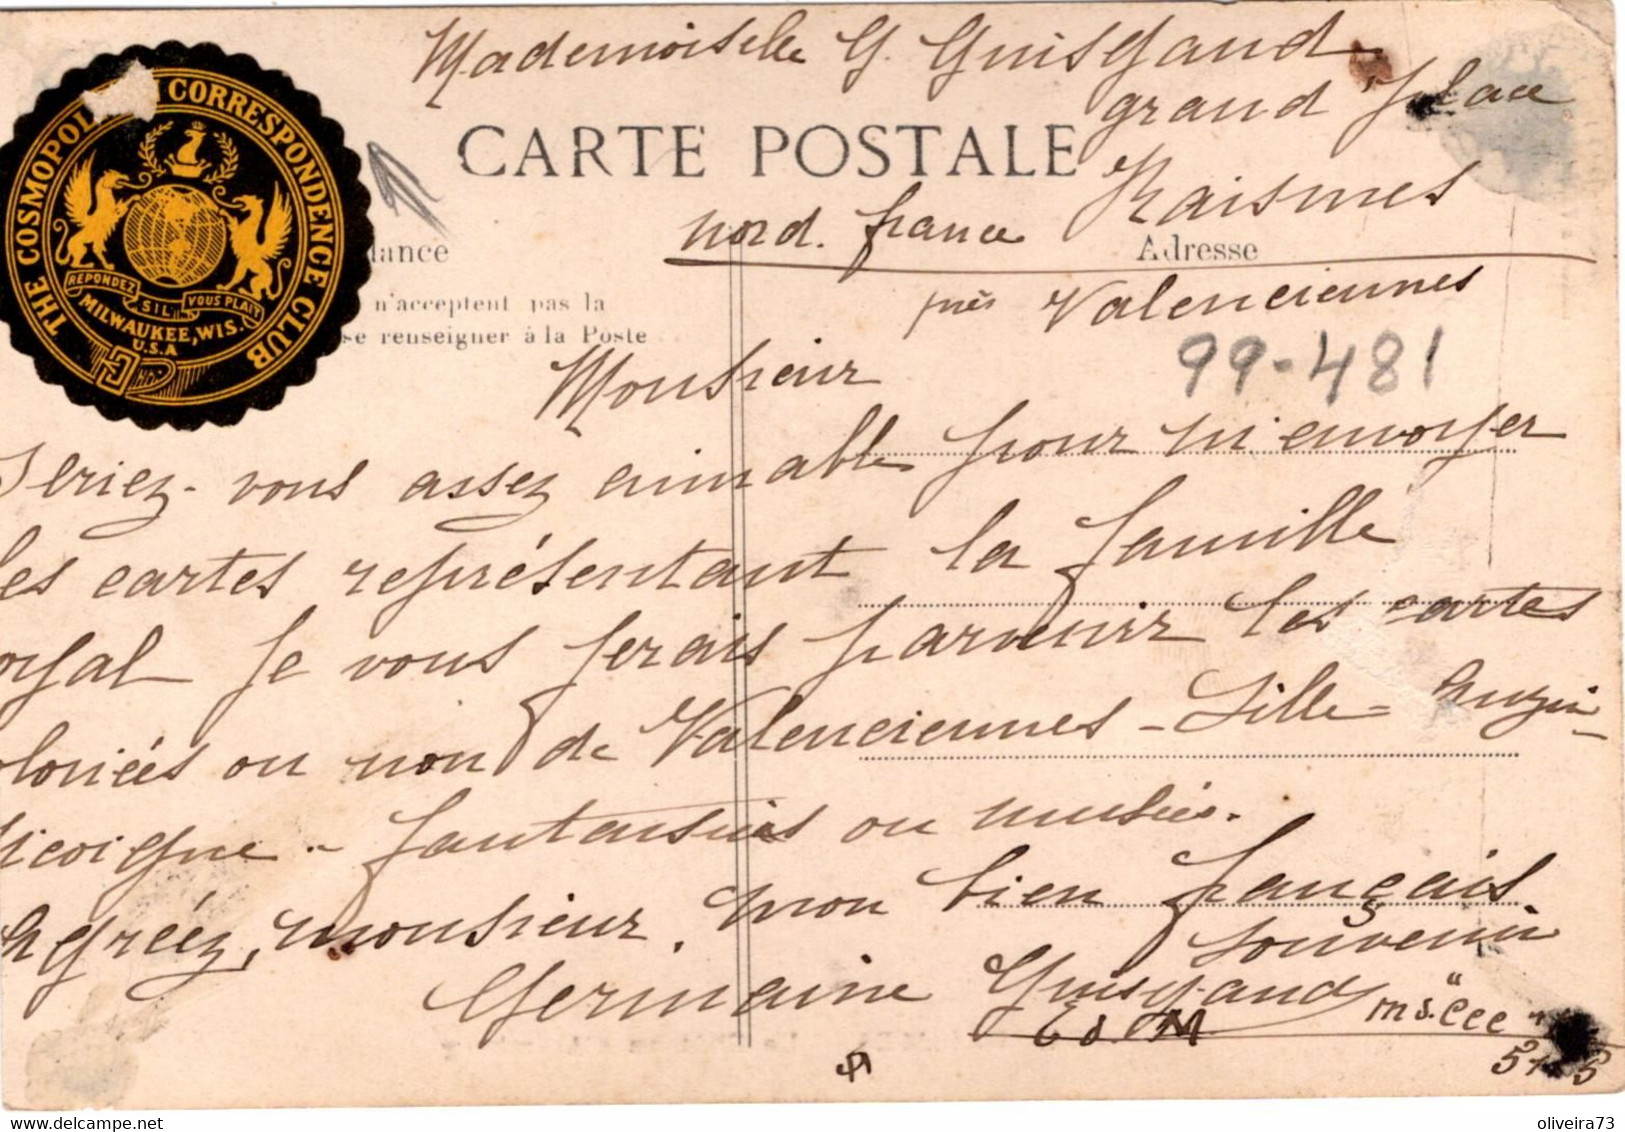 Mademoiselle G. Guisgand
grand'place
CARTE POSTALE
Raismes
nord. france
Adresse
dance
près Valenciennes
n'acceptent pas la
se renseigner à la Poste
THE COSMOPOL CORRESPONDENCE CLUB
REPONDEZ S'IL VOUS PLAIT
MILWAUKEE, WIS.
U.S.A
99-481
Monsieur
Seriez-vous assez aimable pour m'envoyer
les cartes représentant la famille
oyal je vous ferais parvenir les cartes
oloriées ou non de Valenciennes - Lille -
icoigne - fantaisies ou musée.
Agréez, monsieur, mon bien français
souvenir
Germaine Guisgand
m s. "ccc"